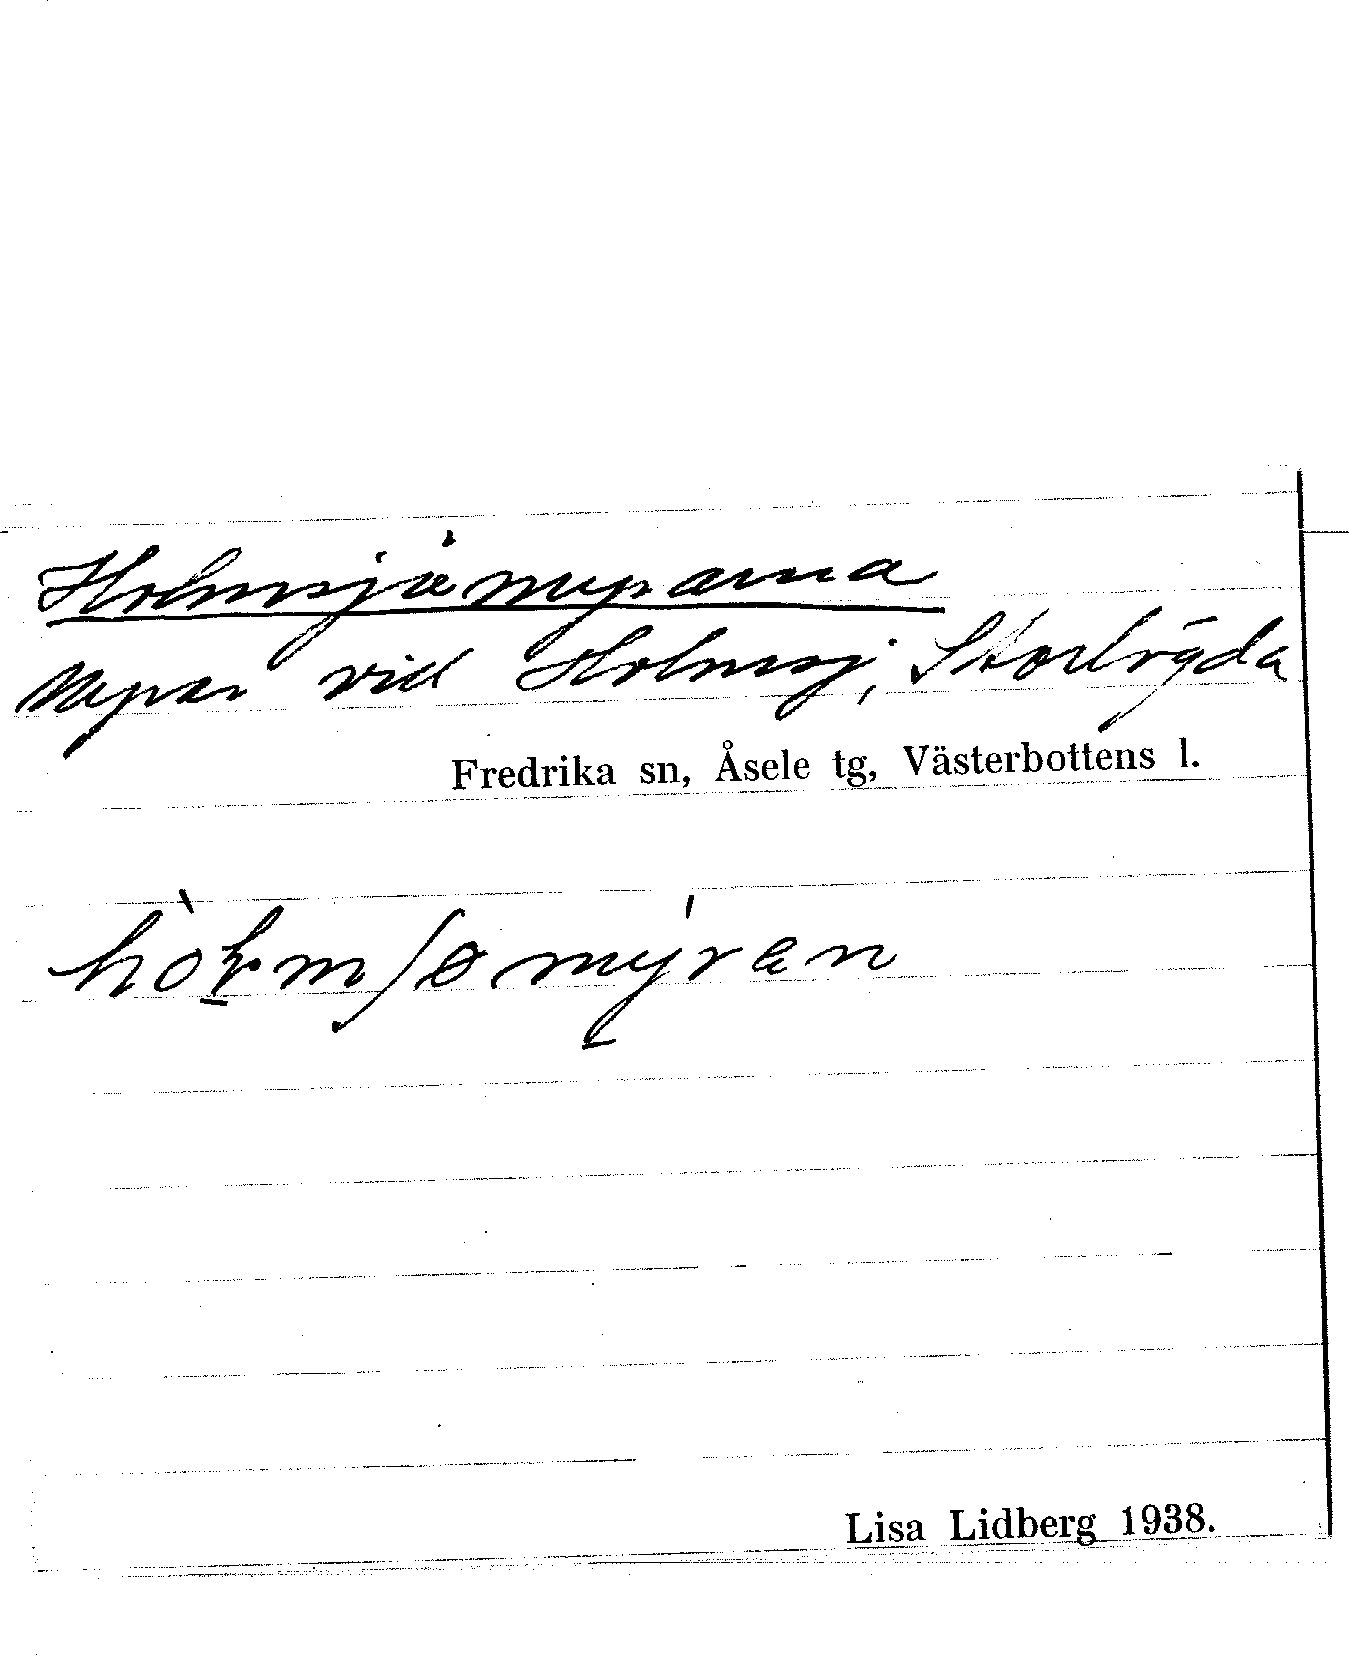 Holmsjömyrarna
Myrar vid Holmsj, Storlögda
Fredrika sn, Åsele tg, Västerbottens l.
Lisa Lidberg 1938.